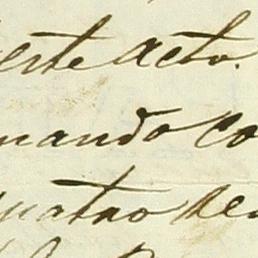 este acto.
mando co
quatro de